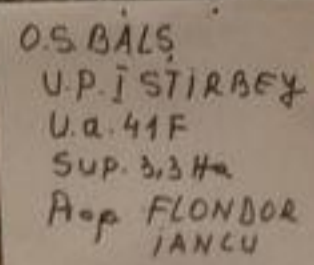 O.S. BALȘ
U.P. I STIRBEY
U.a. 41 F
Sup. 3,3 Ha
Aop FLONDOR
IANCU